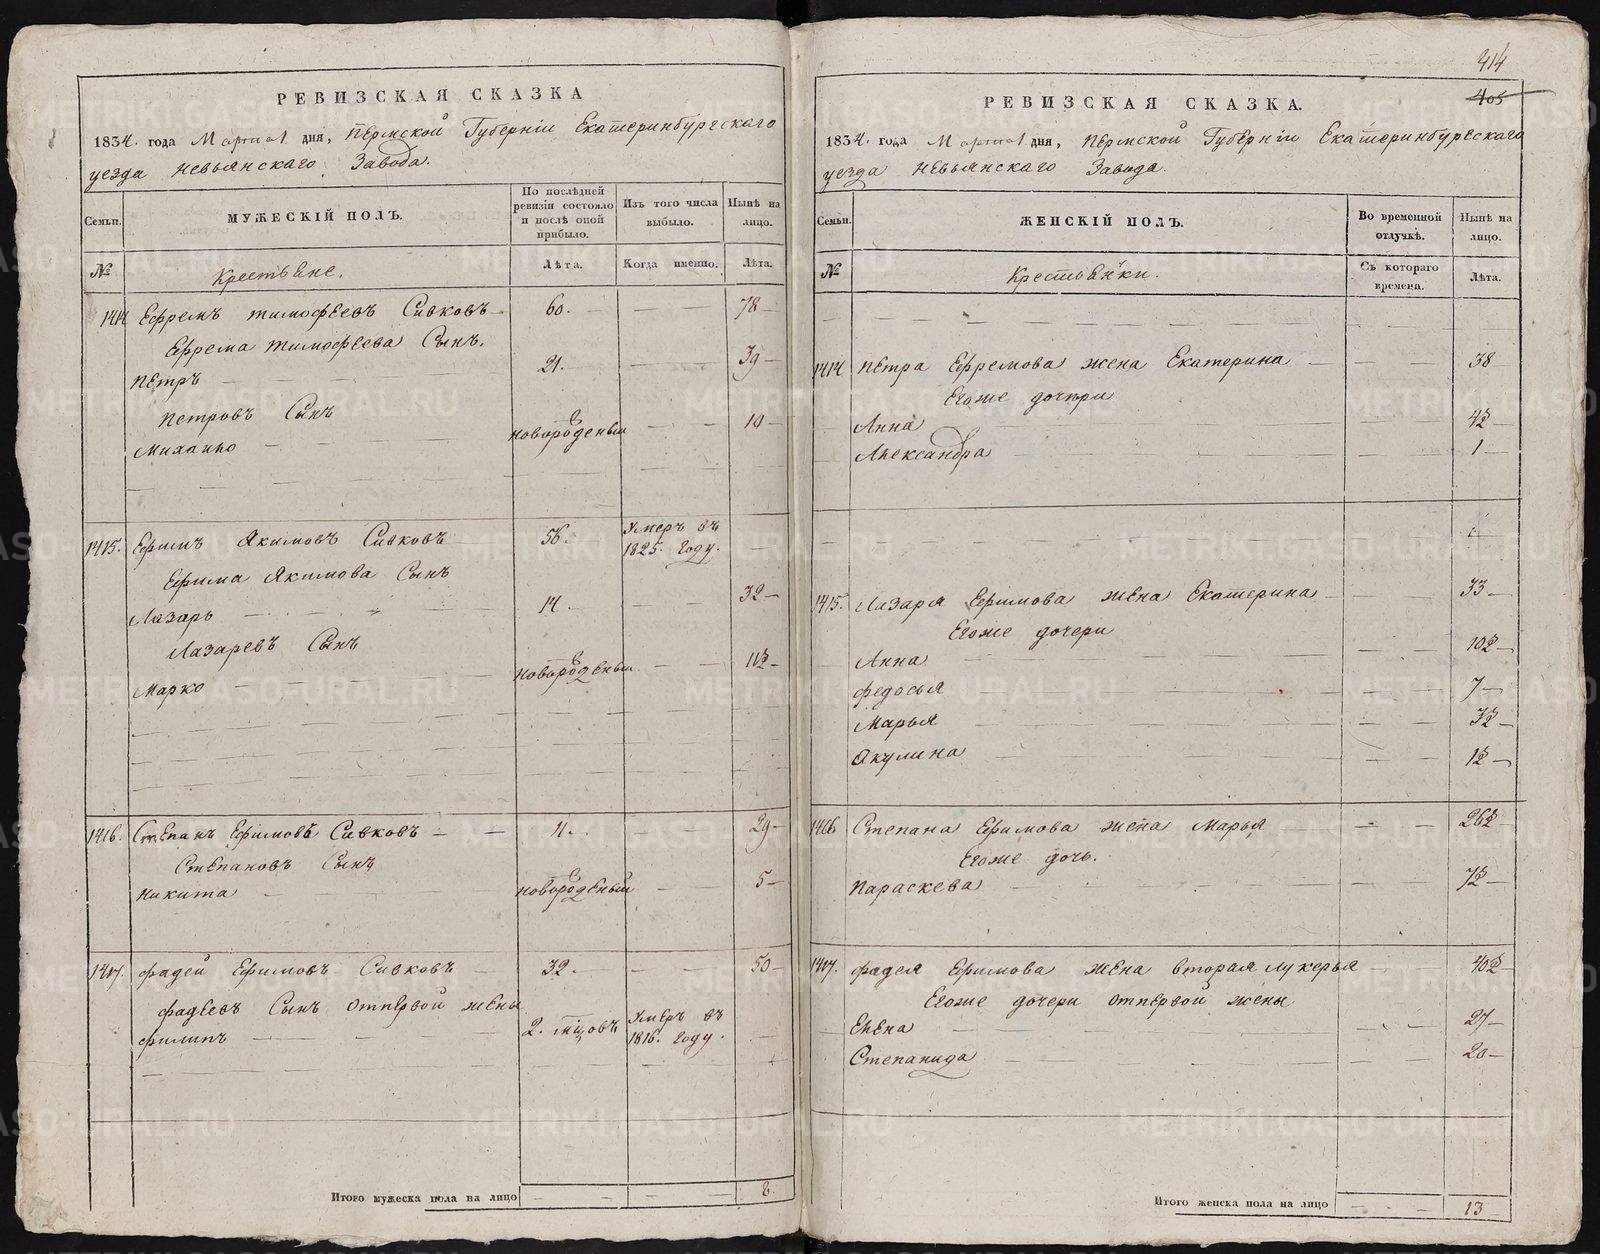 РЕВИЗСКАЯ СКАЗКА
1834. года Марта 1 дня, Пермской Губерніи Екатеринбургскаго
уезда Невьянскаго Завода.
Семьи.
МУЖЕСКІЙ ПОЛЪ.
По послѣдней ревизіи состояло и послѣ оной прибыло.
Изъ того числа выбыло.
Нынѣ на лицо.
№
Крестьяне.
Лѣта.
Когда именно.
Лѣта.
1414 Ефремъ тимофеевъ Сивковъ 60. 78
Ефрема тимофеева Сынъ.
Петръ 21. 39
Петровъ Сынъ
Михаило новорожденый 10
1415. Ефимъ Якимовъ Сивковъ 56. Умеръ въ 1825. году.
Ефима Якимова Сынъ
Лазарь 14. 32
Лазаревъ Сынъ
Марко новорожденый 11½
1416. Степанъ Ефимовъ Сивковъ 11. 29
Степановъ Сынъ
Никита новорожденый 5
1417. фадей Ефимовъ Сивковъ 32. 50
фадеевъ Сынъ отпервой жены
филипъ 2. мцовъ Умеръ въ 1816. году.
Итого мужеска пола на лицо 8.
414
405
РЕВИЗСКАЯ СКАЗКА.
1834. года Марта 1 дня, Пермской Губерніи Екатеринбургскаго
уезда Невьянскаго Завода.
Семьи.
ЖЕНСКІЙ ПОЛЪ.
Во временной отлучкѣ.
Нынѣ на лицо.
№
Крестьянки.
Съ котораго времени.
Лѣта.
1414 Петра Ефремова жена Екатерина 38
Егоже дочери
Анна 4½
Александра 1
1415. Лазаря Ефимова жена Екатерина 33
Егоже дочери
Анна 10½
федосья 7
Марья 3½
Акулина 1½
1416 Степана Ефимова жена Марья 26½
Егоже дочь.
Параскева 7½
1417. фадея Ефимова жена вторая лукерья 40½
Егоже дочери отпервой жены
Елена 27
Степанида 20
Итого женска пола на лицо 13
METRIKI.GASO-URAL.RU